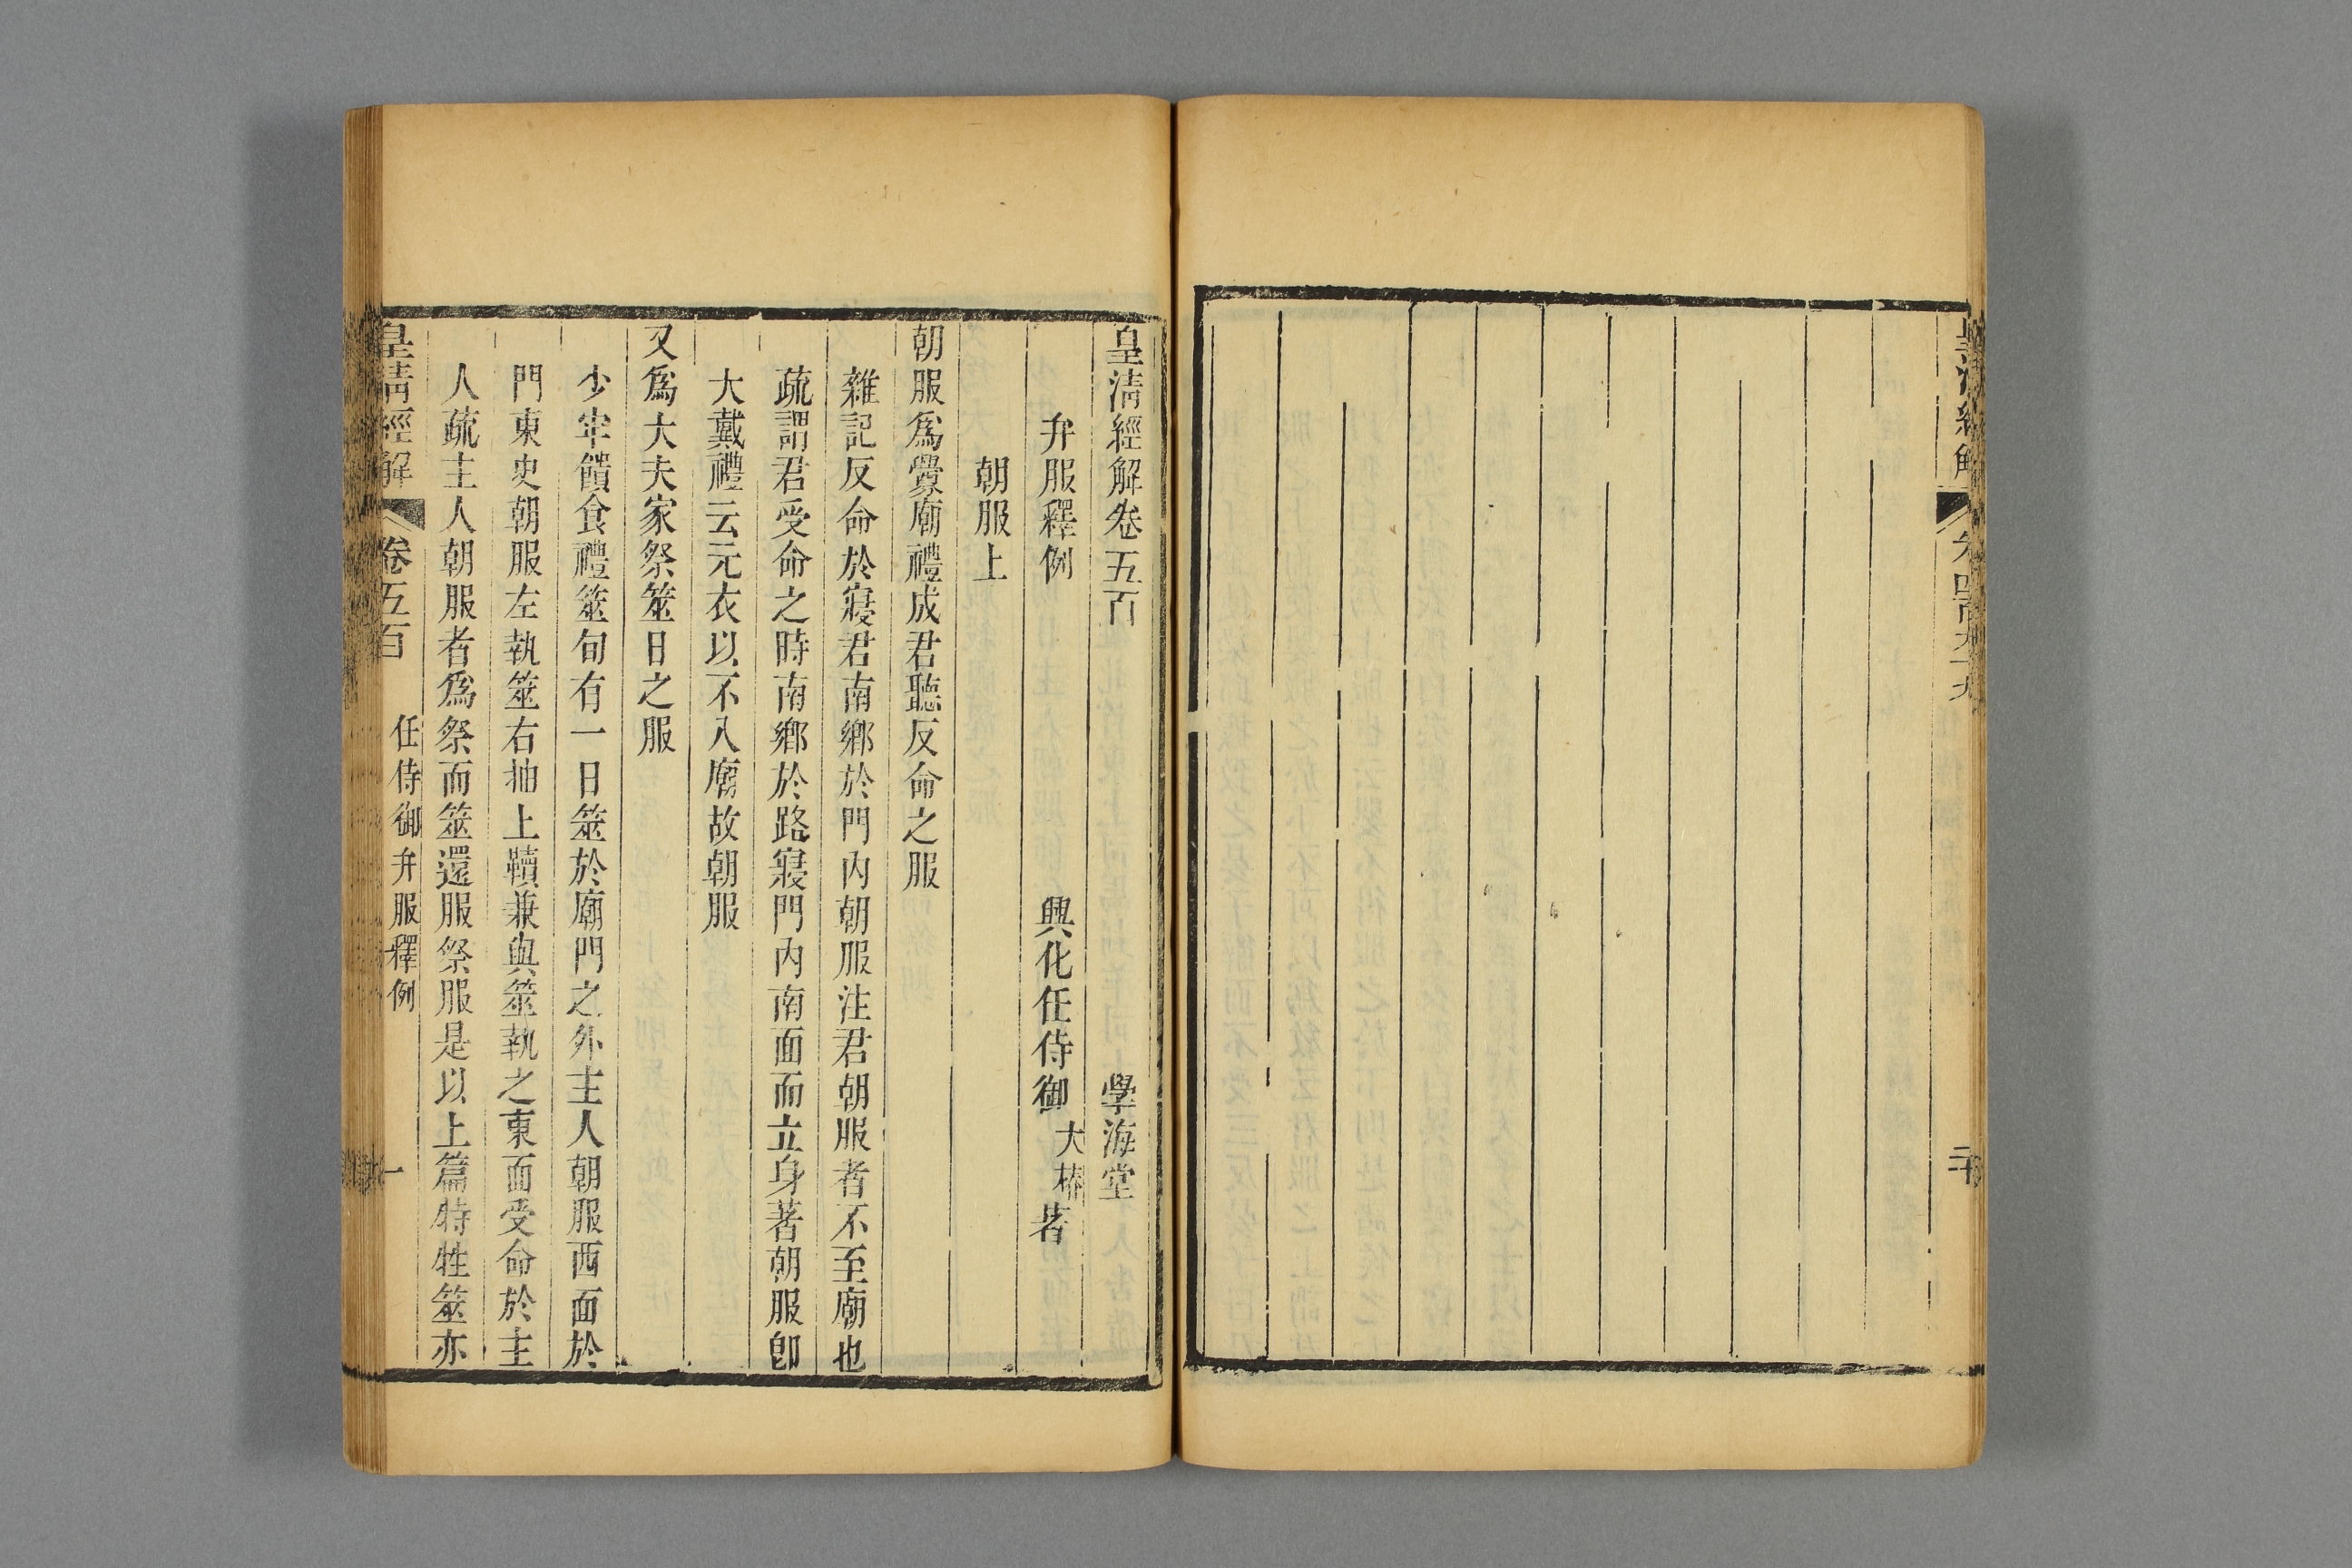 皇清經解 卷四百九十九
二十
皇清經解卷五百 學海堂
弁服釋例 興化任侍御大椿著
朝服上
朝服爲釁廟禮成君聽反命之服
雜記反命於寢君南鄉於門內朝服注君朝服者不至廟也
疏謂君受命之時南鄉於路寢門內南面而立身著朝服卽
大戴禮云元衣以不入廟故朝服
又爲大夫家祭筮日之服
少牢饋食禮筮旬有一日筮於廟門之外主人朝服西面於
門東史朝服左執筮右抽上韇兼與筮執之東面受命於主
人疏主人朝服者爲祭而筮還服祭服是以上篇特牲筮亦
皇清經解 卷五百 任侍御弁服釋例 一